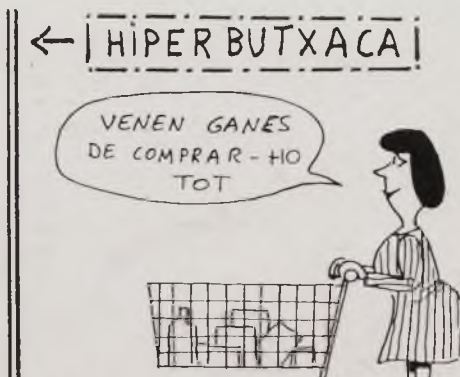 ← HIPER BUTXACA
VENEN GANES
DE COMPRAR-HO
TOT